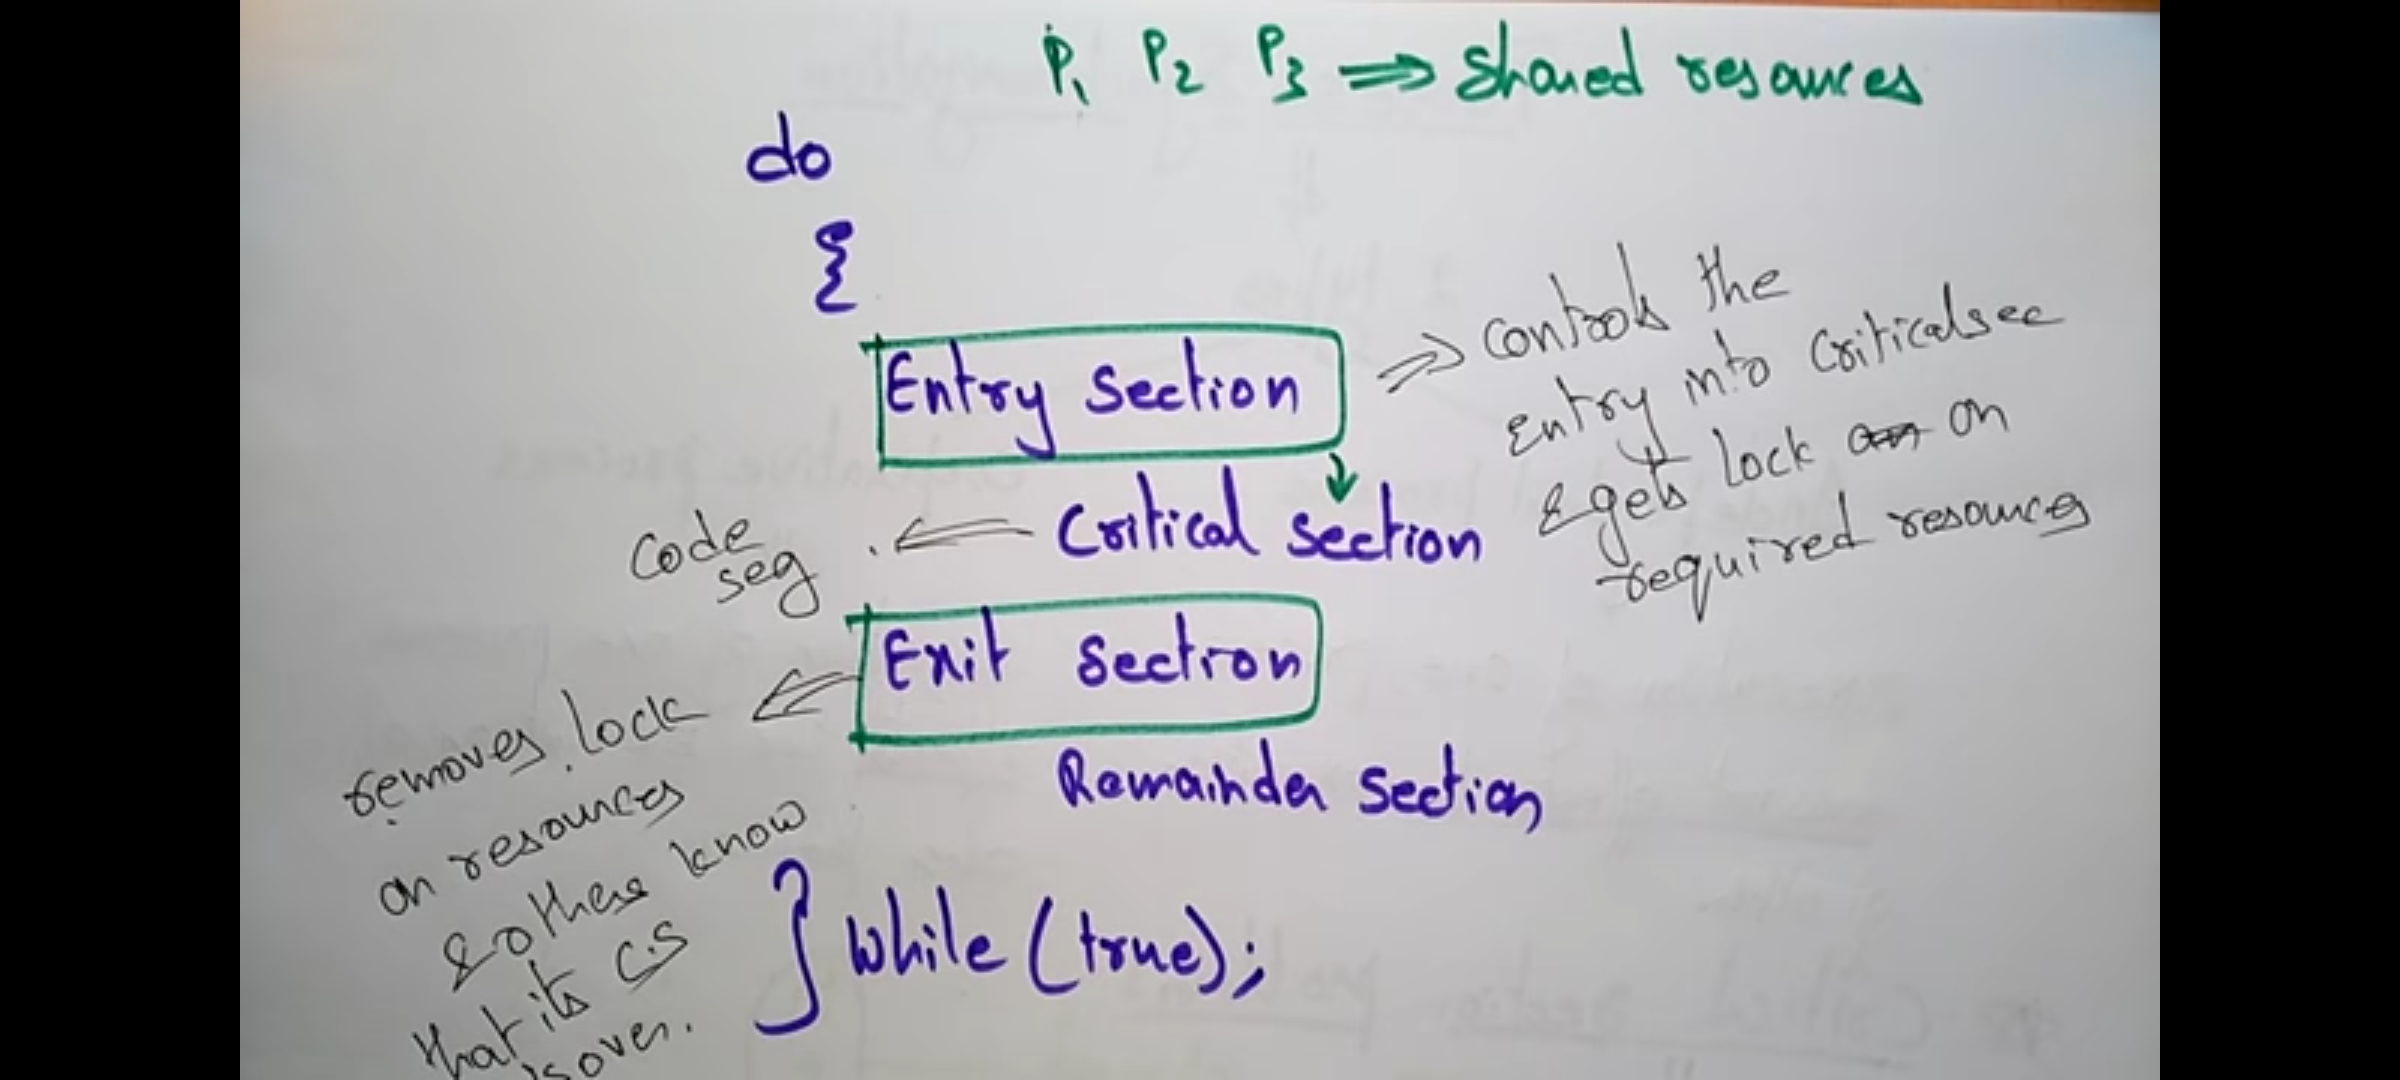 P1 P2 P3 ⇒ Shared resources
do
{
Entry section
⇒ controls the
entry into Criticalsec
& gets lock on
required resources
Critical section
Code
seg
Exit section
removes lock
on resources
& others know
that its C.S
is over.
Remainder section
} while (true);